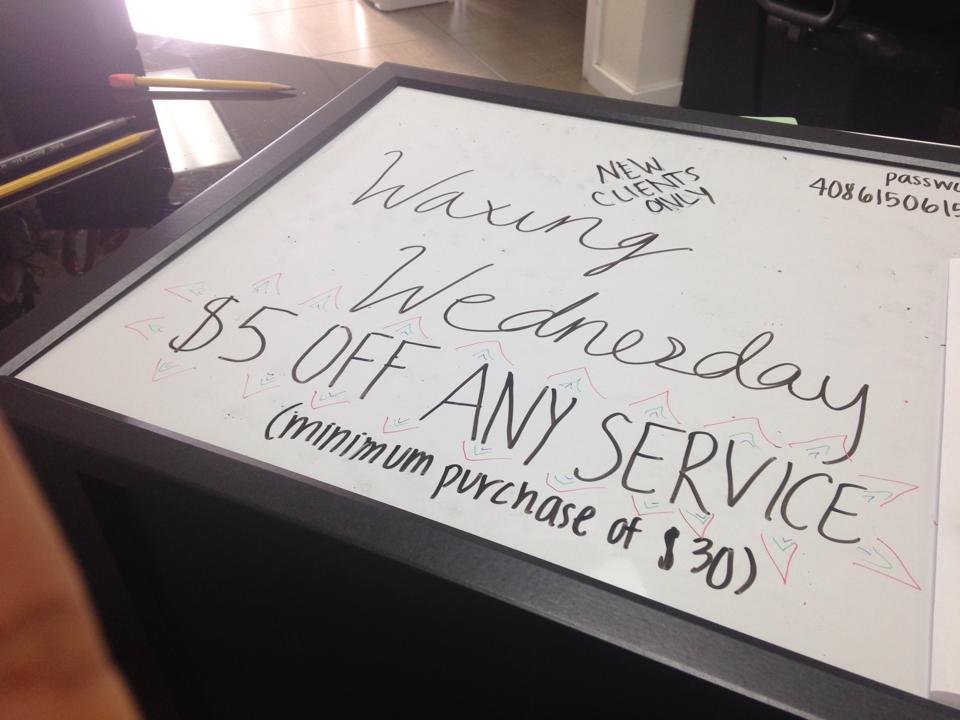 NEW
CLIENTS
ONLY
Waxing
Wednesday
$5 OFF ANY SERVICE
(minimum purchase of $30)